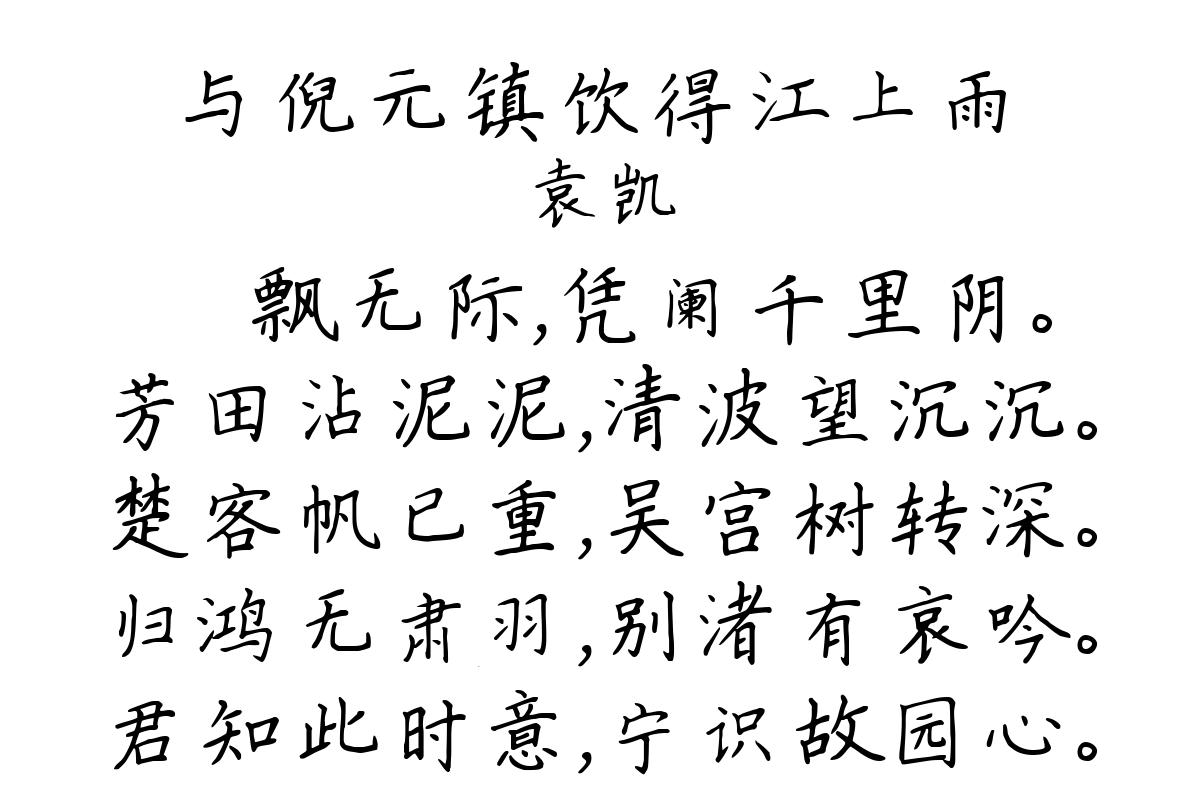 与倪元镇饮得江上雨
袁凯
飘无际,凭阑千里阴。
芳田沾泥泥,清波望沉沉。
楚客帆已重,吴宫树转深。
归鸿无肃羽,别渚有哀吟。
君知此时意,宁识故园心。